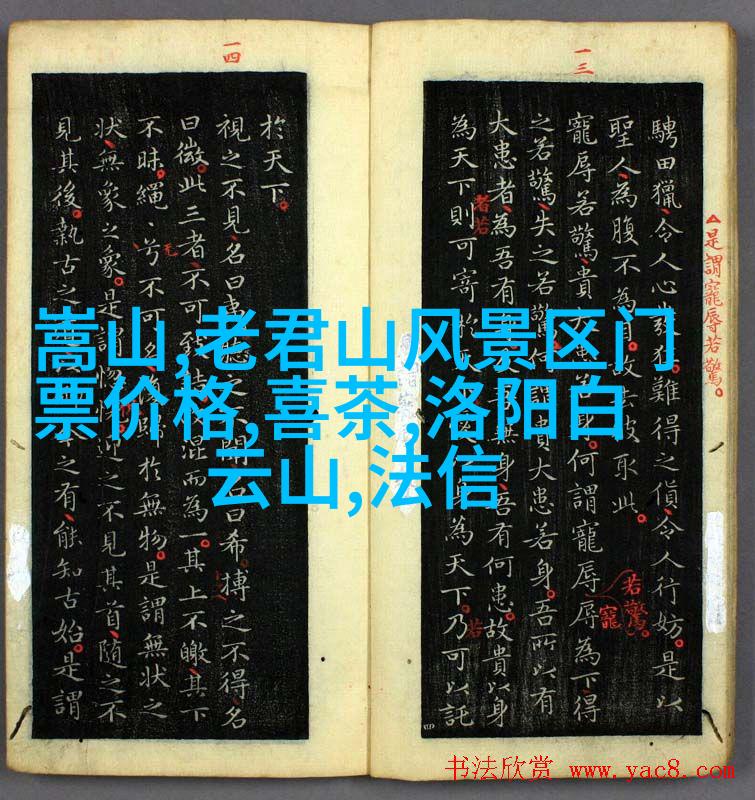 嵩山,老君山风景区门
票价格,喜茶,洛阳白
云山,法信
一三
△是謂寵辱若驚。
騁田獵令人心發狂難得之貨令人行妨是以
聖人為腹不為 去彼取此
寵辱若驚貴大 身何謂寵辱辱為下得
若驚
寵
之若驚失之若驚何謂貴大患若身吾所以有
大患者為吾有 無身吾有何患故貴以身
者若
為天下則可寄於 身為天下乃可以託
若
一四
於天下
視之不見名曰夷 聞名曰希搏之不得名
曰微此三者不可致詰 混而為一其上不皦其下
不昧繩〻兮不可名復歸於無物是謂無狀之
无
狀無象之象是謂惚 迎之不見其首隨之不
見其後執古之 之有能知古始是謂
书法欣赏 www.yac8.com